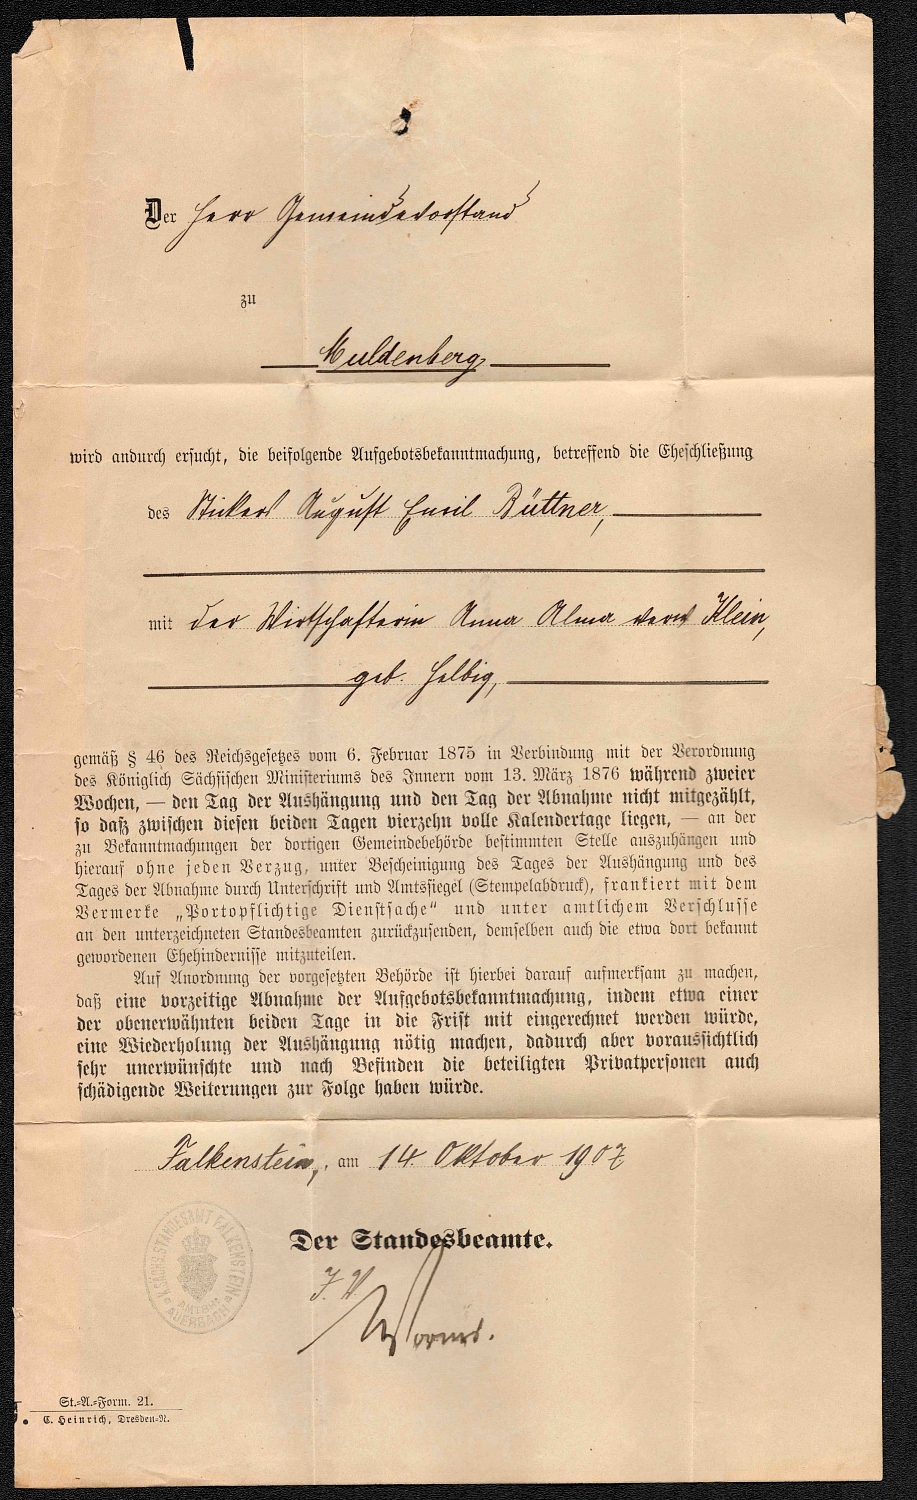 Der Herr Gemeindevorstand
zu
Muldenberg
wird andurch ersucht, die beifolgende Aufgebotsbekanntmachung, betreffend die Eheschließung
des Stickers August Emil Büttner,
mit der Wirtschafterin Anna Alma verw Klein,
geb. Helbig,
gemäß § 46 des Reichsgesetzes vom 6. Februar 1875 in Verbindung mit der Verordnung
des Königlich Sächsischen Ministeriums des Innern vom 13. März 1876 während zweier
Wochen, — den Tag der Aushängung und den Tag der Abnahme nicht mitgezählt,
so daß zwischen diesen beiden Tagen vierzehn volle Kalendertage liegen, — an der
zu Bekanntmachungen der dortigen Gemeindebehörde bestimmten Stelle auszuhängen und
hierauf ohne jeden Verzug, unter Bescheinigung des Tages der Aushängung und des
Tages der Abnahme durch Unterschrift und Amtssiegel (Stempelabdruck), frankiert mit dem
Vermerke „Portopflichtige Dienstsache“ und unter amtlichem Verschlusse
an den unterzeichneten Standesbeamten zurückzusenden, demselben auch die etwa dort bekannt
gewordenen Ehehindernisse mitzuteilen.
Auf Anordnung der vorgesetzten Behörde ist hierbei darauf aufmerksam zu machen,
daß eine vorzeitige Abnahme der Aufgebotsbekanntmachung, indem etwa einer
der obenerwähnten beiden Tage in die Frist mit eingerechnet werden würde,
eine Wiederholung der Aushängung nötig machen, dadurch aber voraussichtlich
sehr unerwünschte und nach Befinden die beteiligten Privatpersonen auch
schädigende Weiterungen zur Folge haben würde.
Falkenstein, am 14. Oktober 1907
Der Standesbeamte.
J. V.
K. SÄCHS. STANDESAMT FALKENSTEIN
AMTSH.
AUERBACH
St.-A.-Form. 21.
C. Heinrich, Dresden-N.